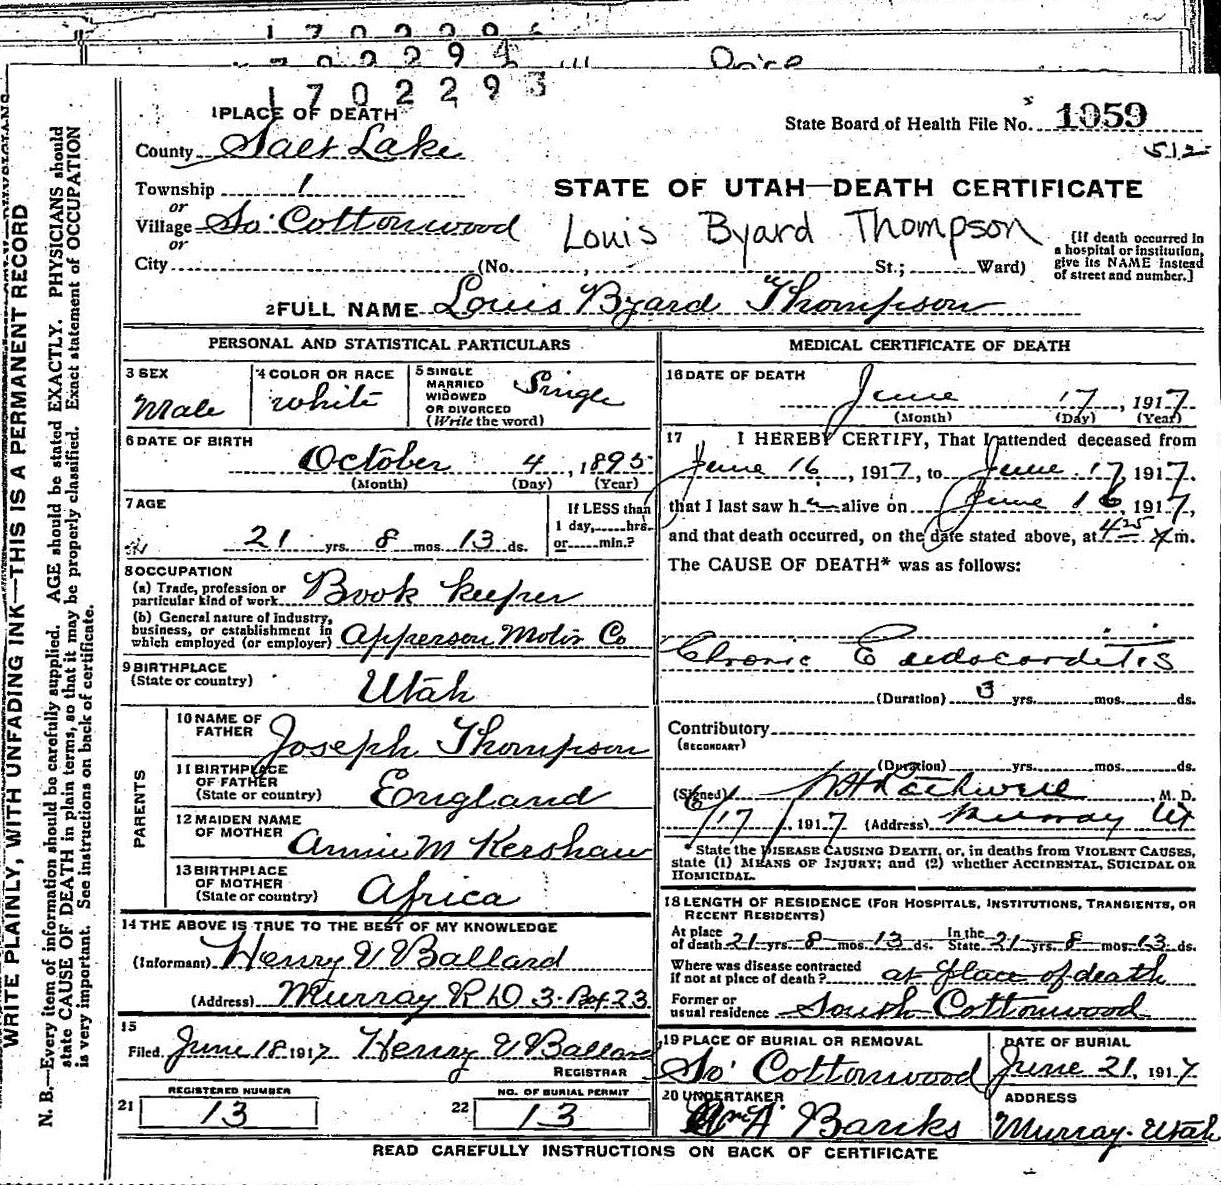 1702293
1 PLACE OF DEATH
State Board of Health File No. 1059
512
County Salt Lake
Township 1
STATE OF UTAH—DEATH CERTIFICATE
or
Village So. Cottonwood
Louis Byard Thompson
or
City (No. , St.; Ward)
[If death occurred in
a hospital or institution,
give its NAME instead
of street and number.]
2 FULL NAME Louis Byard Thompson
PERSONAL AND STATISTICAL PARTICULARS
3 SEX
Male
4 COLOR OR RACE
white
5 SINGLE
MARRIED
WIDOWED
OR DIVORCED
(Write the word)
Single
6 DATE OF BIRTH
October 4, 1895
(Month) (Day) (Year)
7 AGE
21 yrs. 8 mos. 13 ds.
If LESS than
1 day, hrs.
or min.?
8 OCCUPATION
(a) Trade, profession or
particular kind of work Book keeper
(b) General nature of industry,
business, or establishment in
which employed (or employer) Apperson Motor Co
9 BIRTHPLACE
(State or country)
Utah
PARENTS
10 NAME OF
FATHER
Joseph Thompson
11 BIRTHPLACE
OF FATHER
(State or country) England
12 MAIDEN NAME
OF MOTHER
Annie M Kershaw
13 BIRTHPLACE
OF MOTHER
(State or country) Africa
14 THE ABOVE IS TRUE TO THE BEST OF MY KNOWLEDGE
(Informant) Henry V Ballard
(Address) Murray R D 3. Box 23
15
Filed. June 18 1917 Henry V Ballard
REGISTRAR
REGISTERED NUMBER
21 13
NO. OF BURIAL PERMIT
22 13
MEDICAL CERTIFICATE OF DEATH
16 DATE OF DEATH
June 17, 1917
(Month) (Day) (Year)
17 I HEREBY CERTIFY, That I attended deceased from
June 16, 1917, to June 17, 1917.
that I last saw h alive on June 16, 1917,
and that death occurred, on the date stated above, at 4 m.
The CAUSE OF DEATH* was as follows:
Chronic Endocarditis
(Duration) 3 yrs. mos. ds.
Contributory
(SECONDARY)
(Duration) yrs. mos. ds.
(Signed) M. D.
6/17, 1917 (Address) Murray Ut
* State the DISEASE CAUSING DEATH, or, in deaths from VIOLENT CAUSES,
state (1) MEANS OF INJURY; and (2) whether ACCIDENTAL, SUICIDAL OR
HOMICIDAL.
18 LENGTH OF RESIDENCE (FOR HOSPITALS, INSTITUTIONS, TRANSIENTS, OR
RECENT RESIDENTS)
At place
of death 21 yrs. 8 mos. 13 ds.
In the
State 21 yrs. 8 mos. 13 ds.
Where was disease contracted
if not at place of death? at place of death
Former or
usual residence South Cottonwood
19 PLACE OF BURIAL OR REMOVAL
So. Cottonwood
DATE OF BURIAL
June 21, 1917
20 UNDERTAKER
Banks
ADDRESS
Murray. Utah
READ CAREFULLY INSTRUCTIONS ON BACK OF CERTIFICATE
WRITE PLAINLY, WITH UNFADING INK—THIS IS A PERMANENT RECORD
N. B.—Every item of information should be carefully supplied. AGE should be stated EXACTLY. PHYSICIANS should
state CAUSE OF DEATH in plain terms, so that it may be properly classified. Exact statement of OCCUPATION
is very important. See instructions on back of certificate.